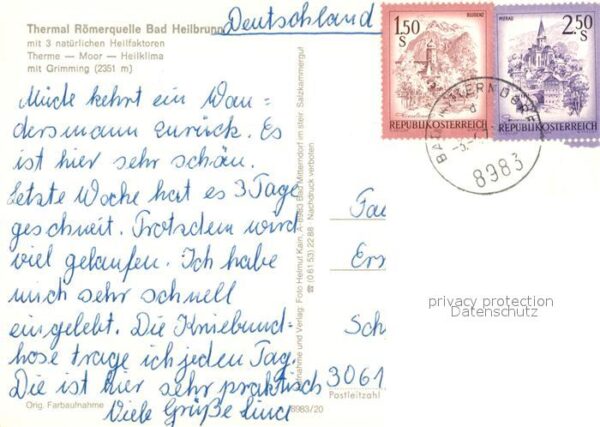 Thermal Römerquelle Bad Heilbrunn
mit 3 natürlichen Heilfaktoren
Therme — Moor — Heilklima
mit Grimming (2351 m)
Deutschland
Müde kehrt ein Wan=
dersmann zurück. Es
ist hier sehr schön.
Letzte Woche hat es 3 Tage
geschneit. Trotzdem wird
viel gelaufen. Ich habe
mich sehr schnell
eingelebt. Die Kniebund=
hose trage ich jeden Tag.
Die ist hier sehr praktisch
Viele Grüße
Orig. Farbaufnahme
8983/20
Aufnahme und Verlag: Foto Helmut Kain, A-8983 Bad Mitterndorf im steir. Salzkammergut
☎ (0 61 53) 22 88 · Nachdruck verboten
1.50
S
BLUDENZ
REPUBLIK ÖSTERREICH
2.50
S
MURAU
REPUBLIK ÖSTERREICH
BAD MITTERNDORF
8983
Fa
Er
Sch
3061
Postleitzahl
privacy protection
Datenschutz